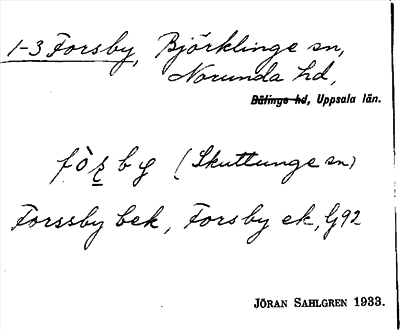 1-3 Forsby, Björklinge sn,
Norunda hd,
Bälinge hd, Uppsala län.
fòʂby (Skuttunge sn)
Forssby bek, Forsby ek, G92
JÖRAN SAHLGREN 1933.